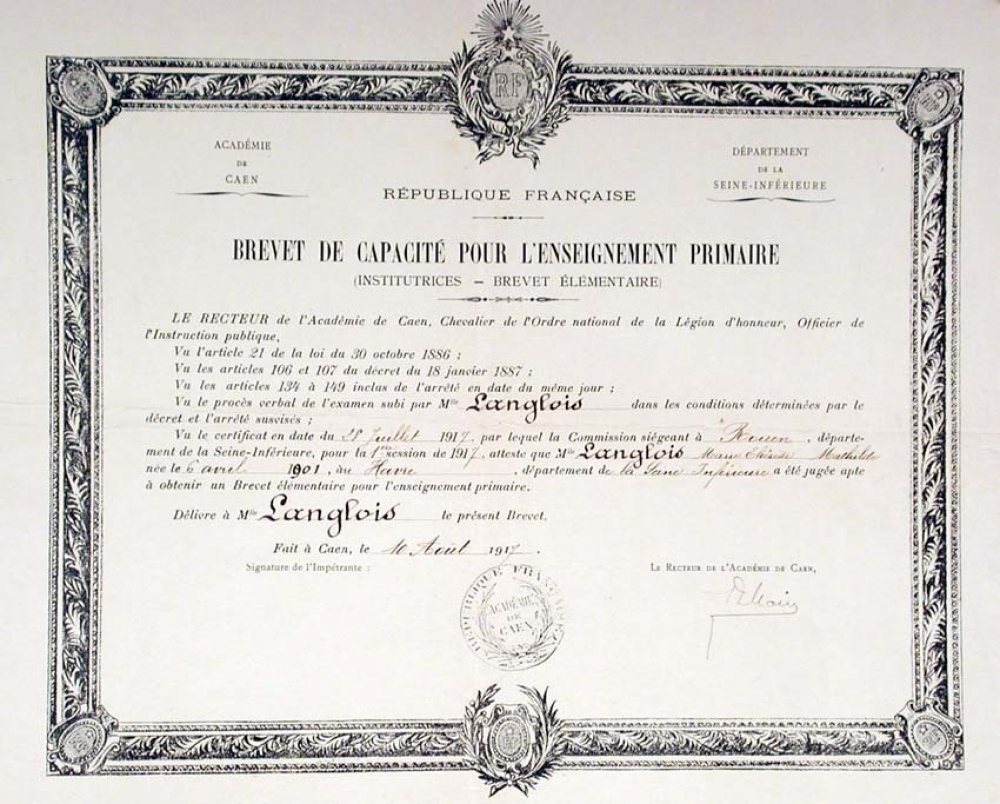 RF
ACADÉMIE
DE
CAEN
DÉPARTEMENT
DE LA
SEINE-INFÉRIEURE
RÉPUBLIQUE FRANÇAISE
BREVET DE CAPACITÉ POUR L'ENSEIGNEMENT PRIMAIRE
(INSTITUTRICES — BREVET ÉLÉMENTAIRE)
LE RECTEUR de l'Académie de Caen, Chevalier de l'Ordre national de la Légion d'honneur, Officier de
l'Instruction publique,
Vu l'article 21 de la loi du 30 octobre 1886 ;
Vu les articles 106 et 107 du décret du 18 janvier 1887 ;
Vu les articles 134 à 149 inclus de l'arrêté en date du même jour ;
Vu le procès verbal de l'examen subi par Mlle Langlois dans les conditions déterminées par le
décret et l'arrêté susvisés ;
Vu le certificat en date du 28 Juillet 1917, par lequel la Commission siégeant à Rouen, départe-
ment de la Seine-Inférieure, pour la 1re session de 1917, atteste que Mlle Langlois Marie Thérèse Mathilde
née le 6 avril 1901, au Havre, département de la Seine Inférieure a été jugée apte
à obtenir un Brevet élémentaire pour l'enseignement primaire.
Délivre à Mlle Langlois le présent Brevet.
Fait à Caen, le 10 Août 1917.
Signature de l'Impétrante :
LE RECTEUR DE L'ACADÉMIE DE CAEN,
RÉPUBLIQUE FRANÇAISE
ACADÉMIE
DE
CAEN